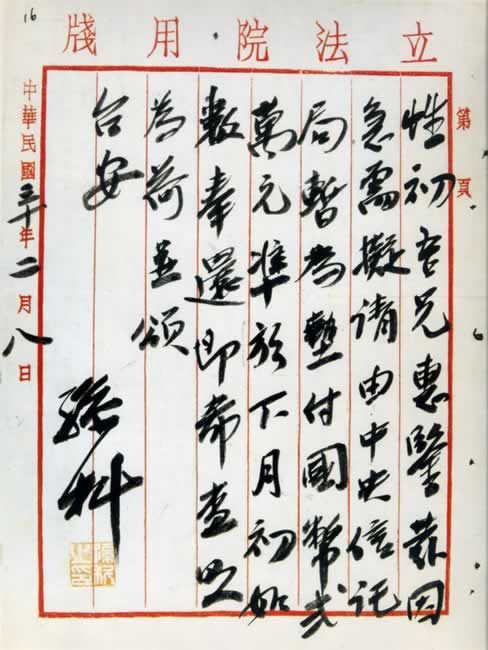 16
立法院用牋
第　頁
性初吾兄惠鑒茲因
急需擬請由中央信託
局暫為墊付國幣弍
萬元準於下月初如
數奉還即希查照
為荷並頌
台安
孫科
孫科之印
中華民國三十年二月八日